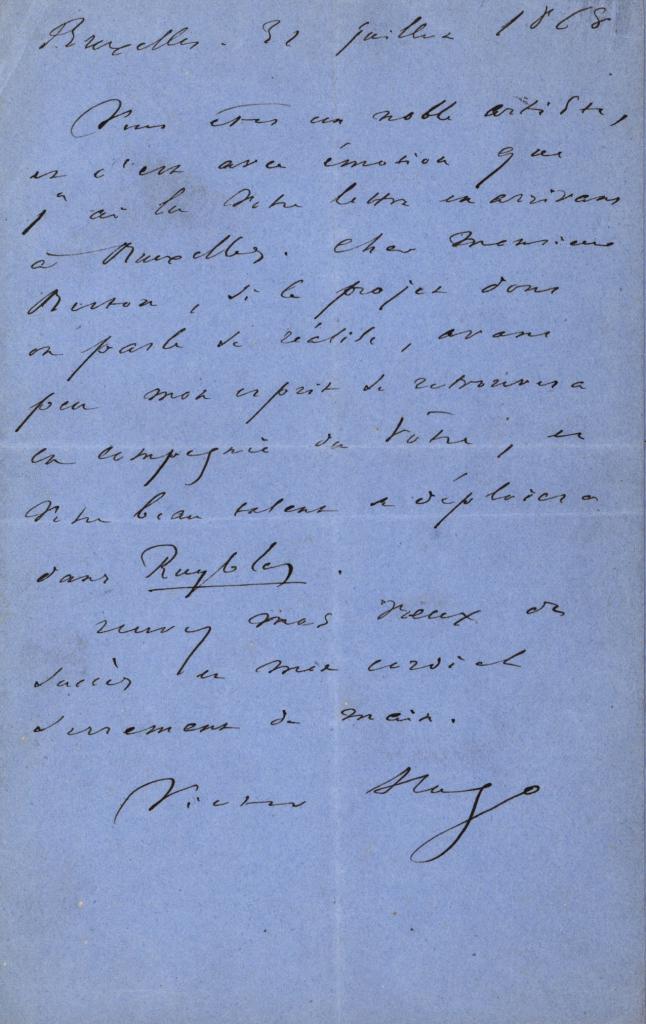 Bruxelles. 31 juillet 1868
Vous êtes un noble artiste,
et c'est avec émotion que
j'ai lu votre lettre en arrivant
à Bruxelles. Cher Monsieur
si le projet dont
on parle se réalise, avant
peu mon esprit se retrouvera
en compagnie du vôtre, et
votre beau talent se déploiera
dans Ruyblas.
recevez mes vœux de
succès et mon cordial
serrement de main.
Victor Hugo